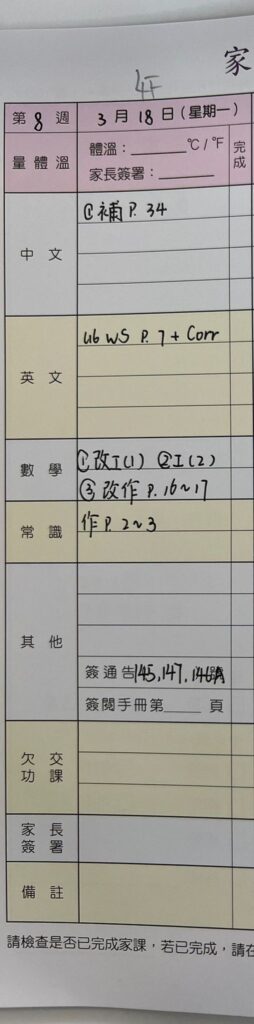 家
4F
第 8 週 3 月 18 日 (星期一)
量體溫 體溫：______ °C / °F 完成
家長簽署：______
中 文 ①補 P. 34
英 文 U6 WS P. 7 + Corr
數 學 ①改工(1) ②工(2)
③改作 P. 16~17
常 識 作 P. 2~3
其 他
簽通告145, 147, 146A
簽閱手冊第____ 頁
欠 交 功 課
家 長 簽 署
備 註
請檢查是否已完成家課，若已完成，請在